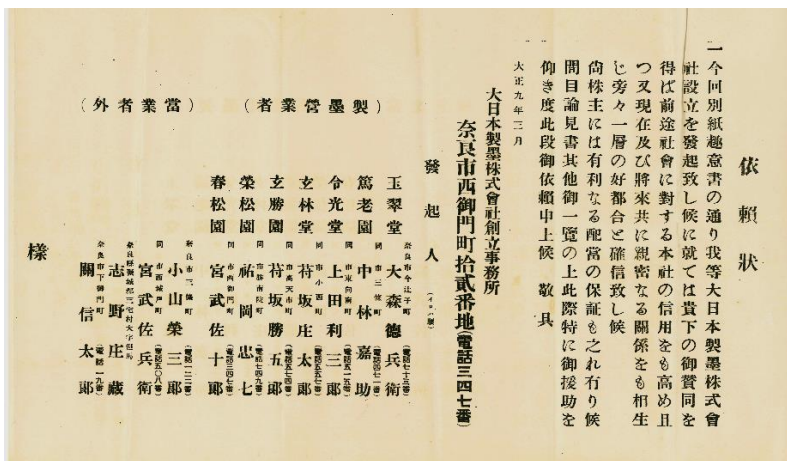 依賴狀
一今回別紙趣意書の通り我等大日本製墨株式會
社設立を發起致し候に就ては貴下の御賛同を
得ば前途社會に對する本社の信用をも高め且
つ又現在及び將來共に親密なる關係をも相生
じ旁々一層の好都合と確信致し候
尙株主には有利なる配當の保証も之れ有り候
間目論見書其他御一覽の上此際特に御援助を
仰き度此段御依賴申上候 敬具
大正九年三月
大日本製墨株式會社創立事務所
奈良市西御門町拾貳番地(電話三四七番)
發起人(イロハ順)
(製墨營業者)
玉翠堂 奈良市今辻子町 大森德兵衛(電話七十五番)
篤老園 同市三條町 中林嘉助
令光堂 同市東向南町 上田利三郞(電話五一五番)
玄林堂 同市小西町 苻坂庄太郞(電話五五七番)
玄勝園 苻坂勝五郞(電話五七四番)
榮松園 祐岡忠七(電話七四九番)
春松園 同市西御門町 宮武佐十郞(電話三四七番)
(當業者外)
奈良市三條町 小山榮三郞(電話一二二番)
同市西城戸町 宮武佐兵衛(電話五〇八番)
志野庄藏
奈良市下御門町 關信太郞(電話一九番)
樣